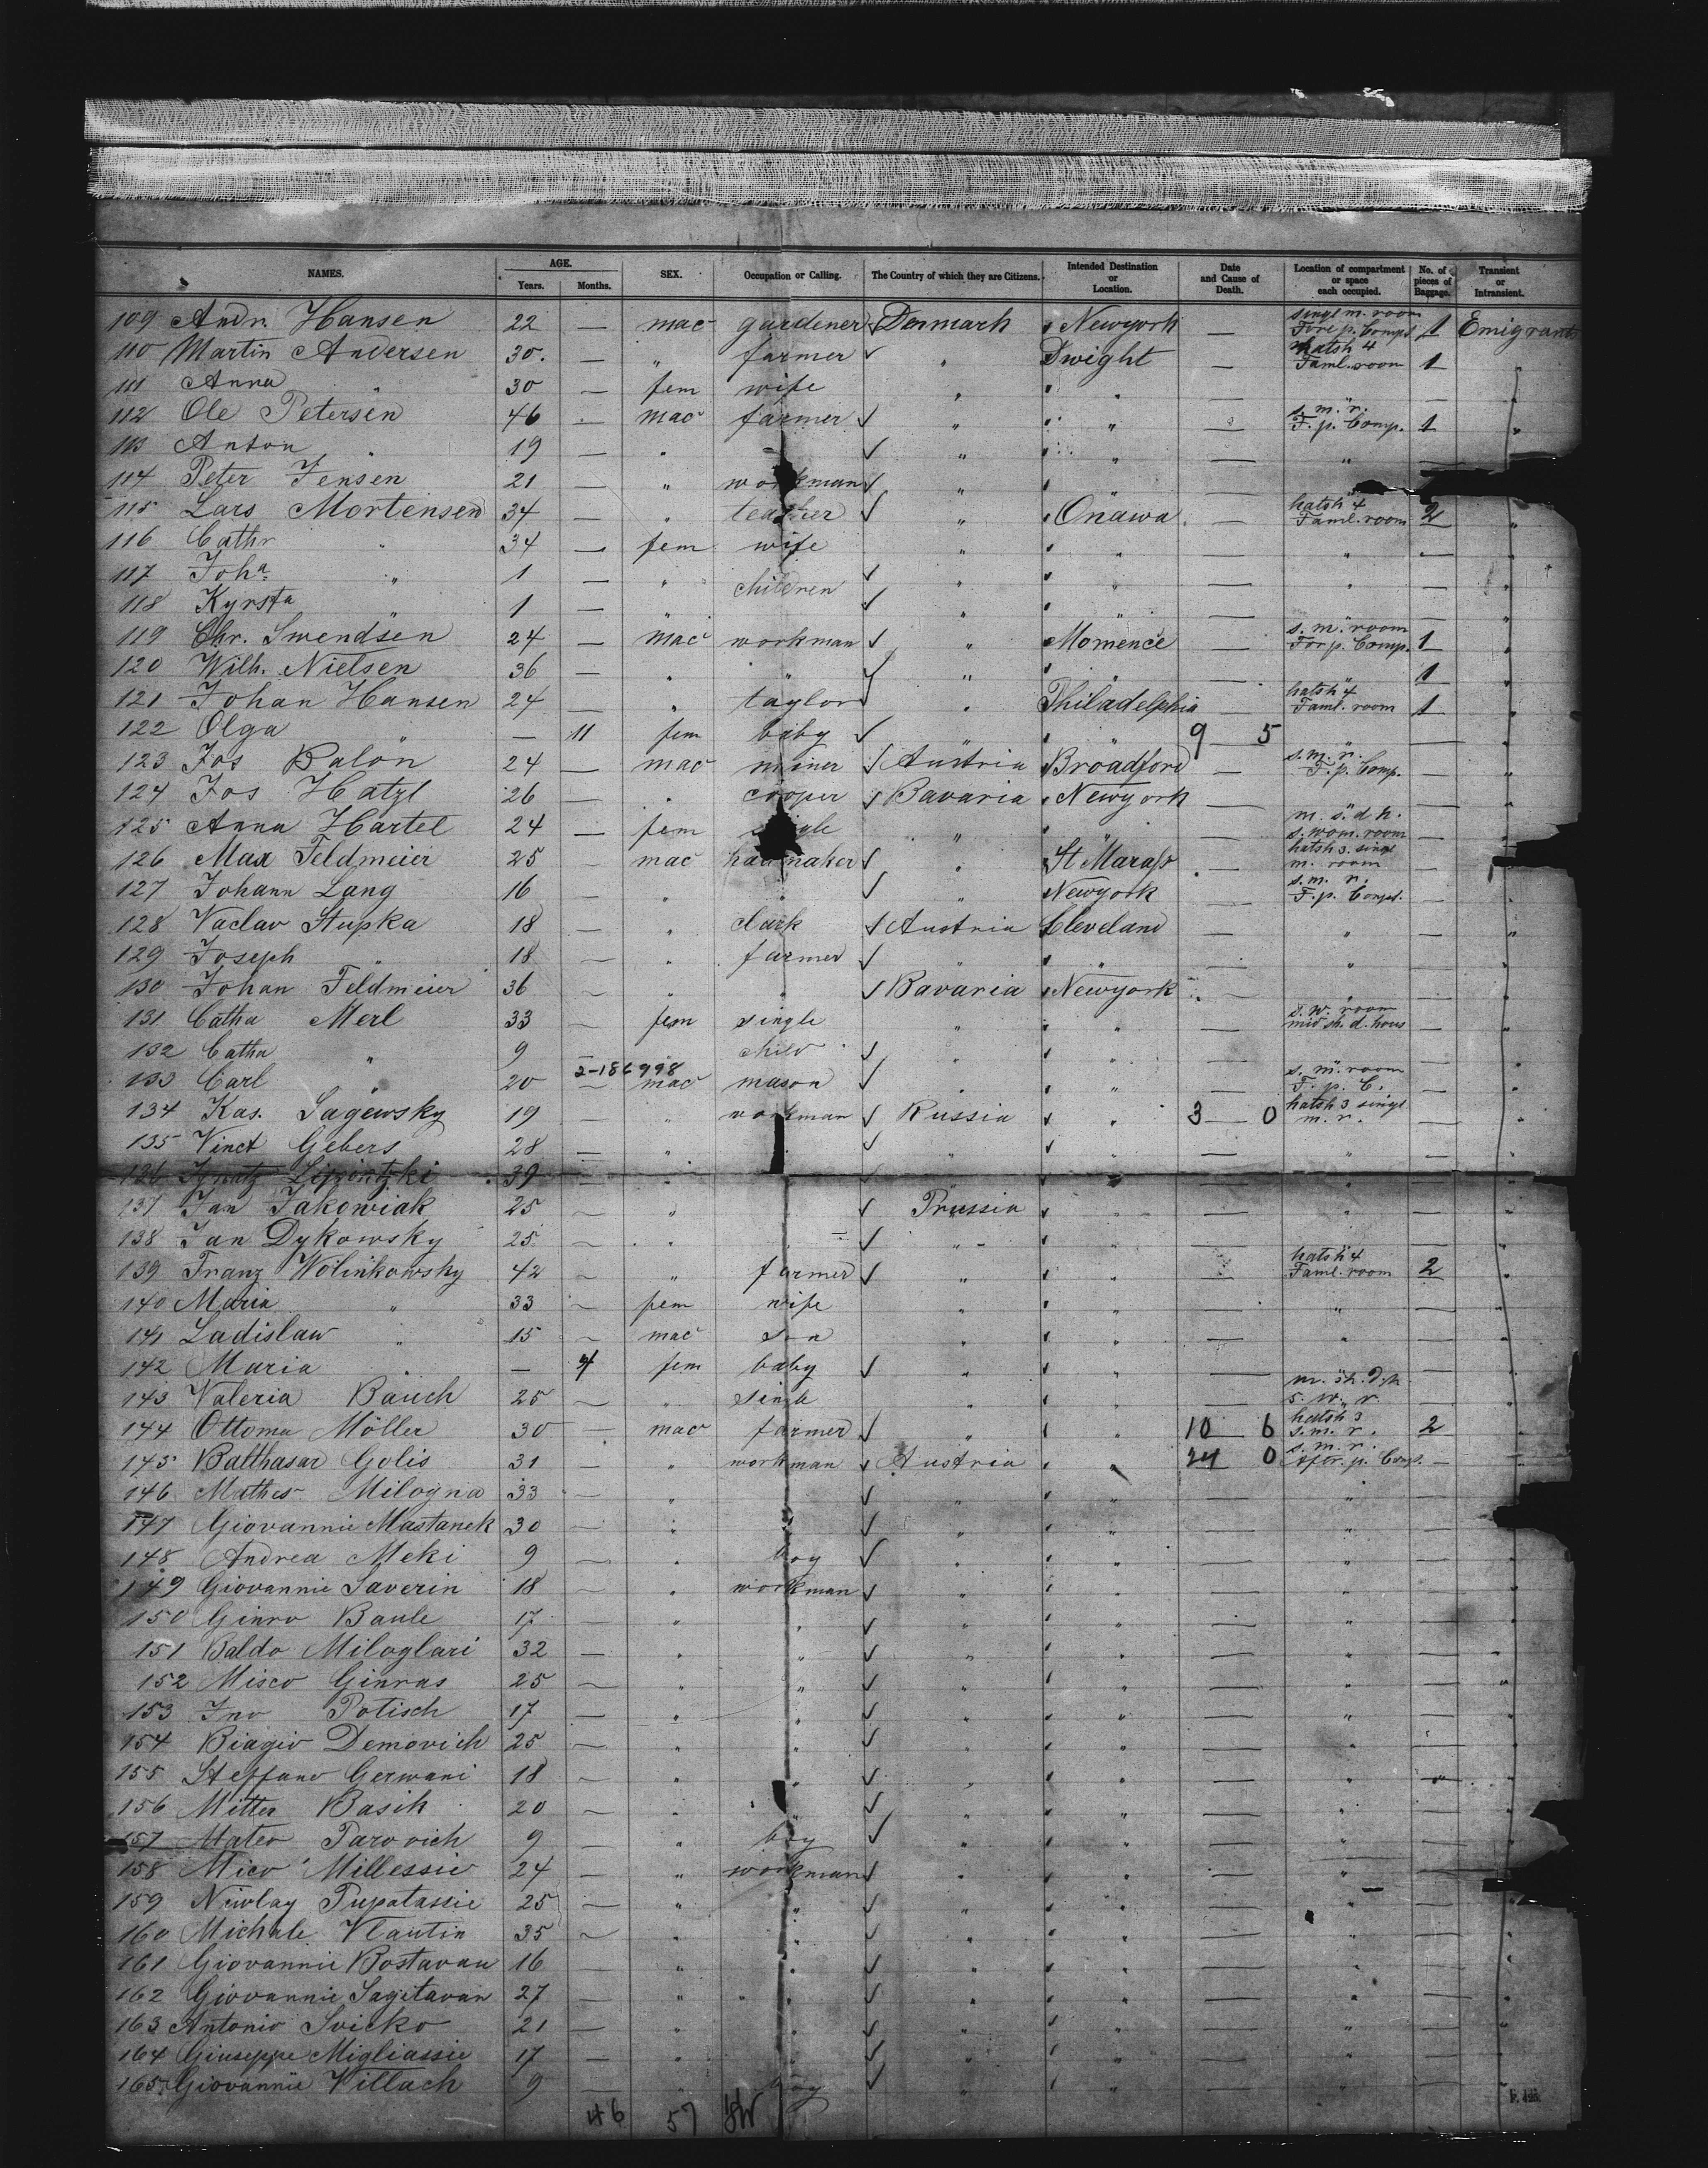 NAMES. AGE. Years. Months. SEX. Occupation or Calling. The Country of which they are Citizens. Intended Destination or Location. Date and Cause of Death. Location of compartment or space each occupied. No. of pieces of Baggage. Transient or Intransient.
109 Andr. Hansen 22 — mac gardener Denmark Newyork — singl m. room Fore p. Comp. 1 Emigrant
110 Martin Andersen 30. — " farmer " Dwight — hatsh 4 Faml. room 1 "
111 Anna " 30 — fem wife " " " — " — "
112 Ole Petersen 46 - mac farmer " " s. m. r. F. p. Comp. 1 "
113 Anton " 19 — " " " " — " —
114 Peter Jensen 21 — " workman " " —
115 Lars Mortensen 34 — " teacher " Onawa. — hatsh 4 Faml. room 2 "
116 Cathr " 34 — fem wife " " — " — "
117 Joha " 1 — " children " — " — "
118 Kyrsta " 1 — " " " — " — "
119 Chr. Swendsen 24 — mac workman " Momence — s. m. room For p. Comp. 1 "
120 Wilh. Nielsen 36 — " " " " — " 1 "
121 Johan Hansen 24 — " taylor " Philadelphia — hatsh 4 Faml. room 1 "
122 Olga " — 11 fem baby " " 9 — 5 " — "
123 Jos Balon 24 — mac miner Austria Broadford — s. m. r. F. p. Comp. — "
124 Jos Hatzl 26 — " cooper Bavaria Newyork — " — "
125 Anna Hartel 24 — fem " " — m. s. d h. s. wom. room — "
126 Max Feldmeier 25 — mac " St Marass — hatsh 3. singl m. room —
127 Johann Lang 16 — " " " Newyork — s. m. r. F. p. Comp. —
128 Vaclav Stupka 18 — " clark Austria Cleveland — " — "
129 Joseph " 18 — " farmer " " — " — "
130 Johan Feldmeier 36 — " " Bavaria Newyork — " — "
131 Catha Merl 33 — fem single " " — s. w. room mid sh. d. hous — "
132 Catha " 9 — " child " " — " — "
2-186998
133 Carl " 20 — mac mason " " — s. m. room F. p. C. — "
134 Kas. Sagewsky 19 — " workman Russia " 3 — 0 hatsh 3 singl m. r. — "
135 Vinct Gebers 28 — " " " — " — "
136 39 — " — " — "
137 Jan Jakowiak 25 — " Prussia " — " — "
138 Jan Dykowsky 25 — " " " — " — "
139 Franz Wolinkowsky 42 — " farmer " " — hatsh 4 Faml. room 2 "
140 Maria " 33 — fem wife " " — " — "
141 Ladislaw " 15 — mac son " " — " — "
142 Maria " — 4 fem baby " " — " — "
143 Valeria Bauch 25 — " single " " — s. w. r. — "
144 Ottoma Möller 30 — mac farmer " " 10 6 hatsh 3 s. m. r. 2 "
145 Balthasar Golis 31 — " workman Austria " 24 0 s. m. r. After. p. Comp. — "
146 Mathes Milogna 33 — " " " — " — "
147 Giovannie Mastanek 30 — " " " " — " — "
148 Andrea Meki 9 — " boy " " — " — "
149 Giovannie Saverin 18 — " workman " " — " — "
150 Ginro Baule 17 — " " " " — " — "
151 Baldo Miloglari 32 — " " " " — " — "
152 Misco Ginras 25 — " " " " — " — "
153 Ino Potisch 17 — " " " " — " — "
154 Biagio Demovich 25 — " " " " — " — "
155 Steffano Gerwani 18 — " " " " — " — "
156 Mitter Basih 20 — " " " " — " — "
157 Mateo Parovich 9 — " boy " " — " — "
158 Mico Millessie 24 — " workman " " — " — "
159 Niwlay Pupatassie 25 — " " " " — " — "
160 Michale Vlautin 35 — " " " " — " — "
161 Giovannie Bostavan 16 — " " " " — " — "
162 Giovannie Sagitavan 27 — " " " " — " — "
163 Antonio Svicko 21 — " " " " — " — "
164 Giuseppe Migliassie 17 — " " " " — " — "
165 Giovannie Villach 9 — " boy " " — " — "
46 57